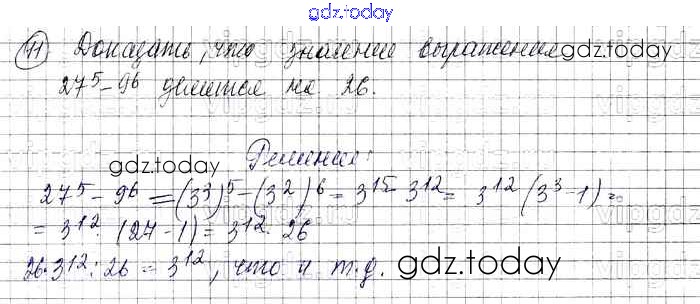 gdz.today
11) Доказать, что значение выражения gdz.today
27⁵ – 9⁶ делится на 26.
gdz.today Решение:
27⁵ – 9⁶ = (3³)⁵ – (3²)⁶ = 3¹⁵ – 3¹² = 3¹² (3³ – 1) =
= 3¹² · (27 – 1) = 3¹² · 26
26 · 3¹² : 26 = 3¹², что и т.д. gdz.today